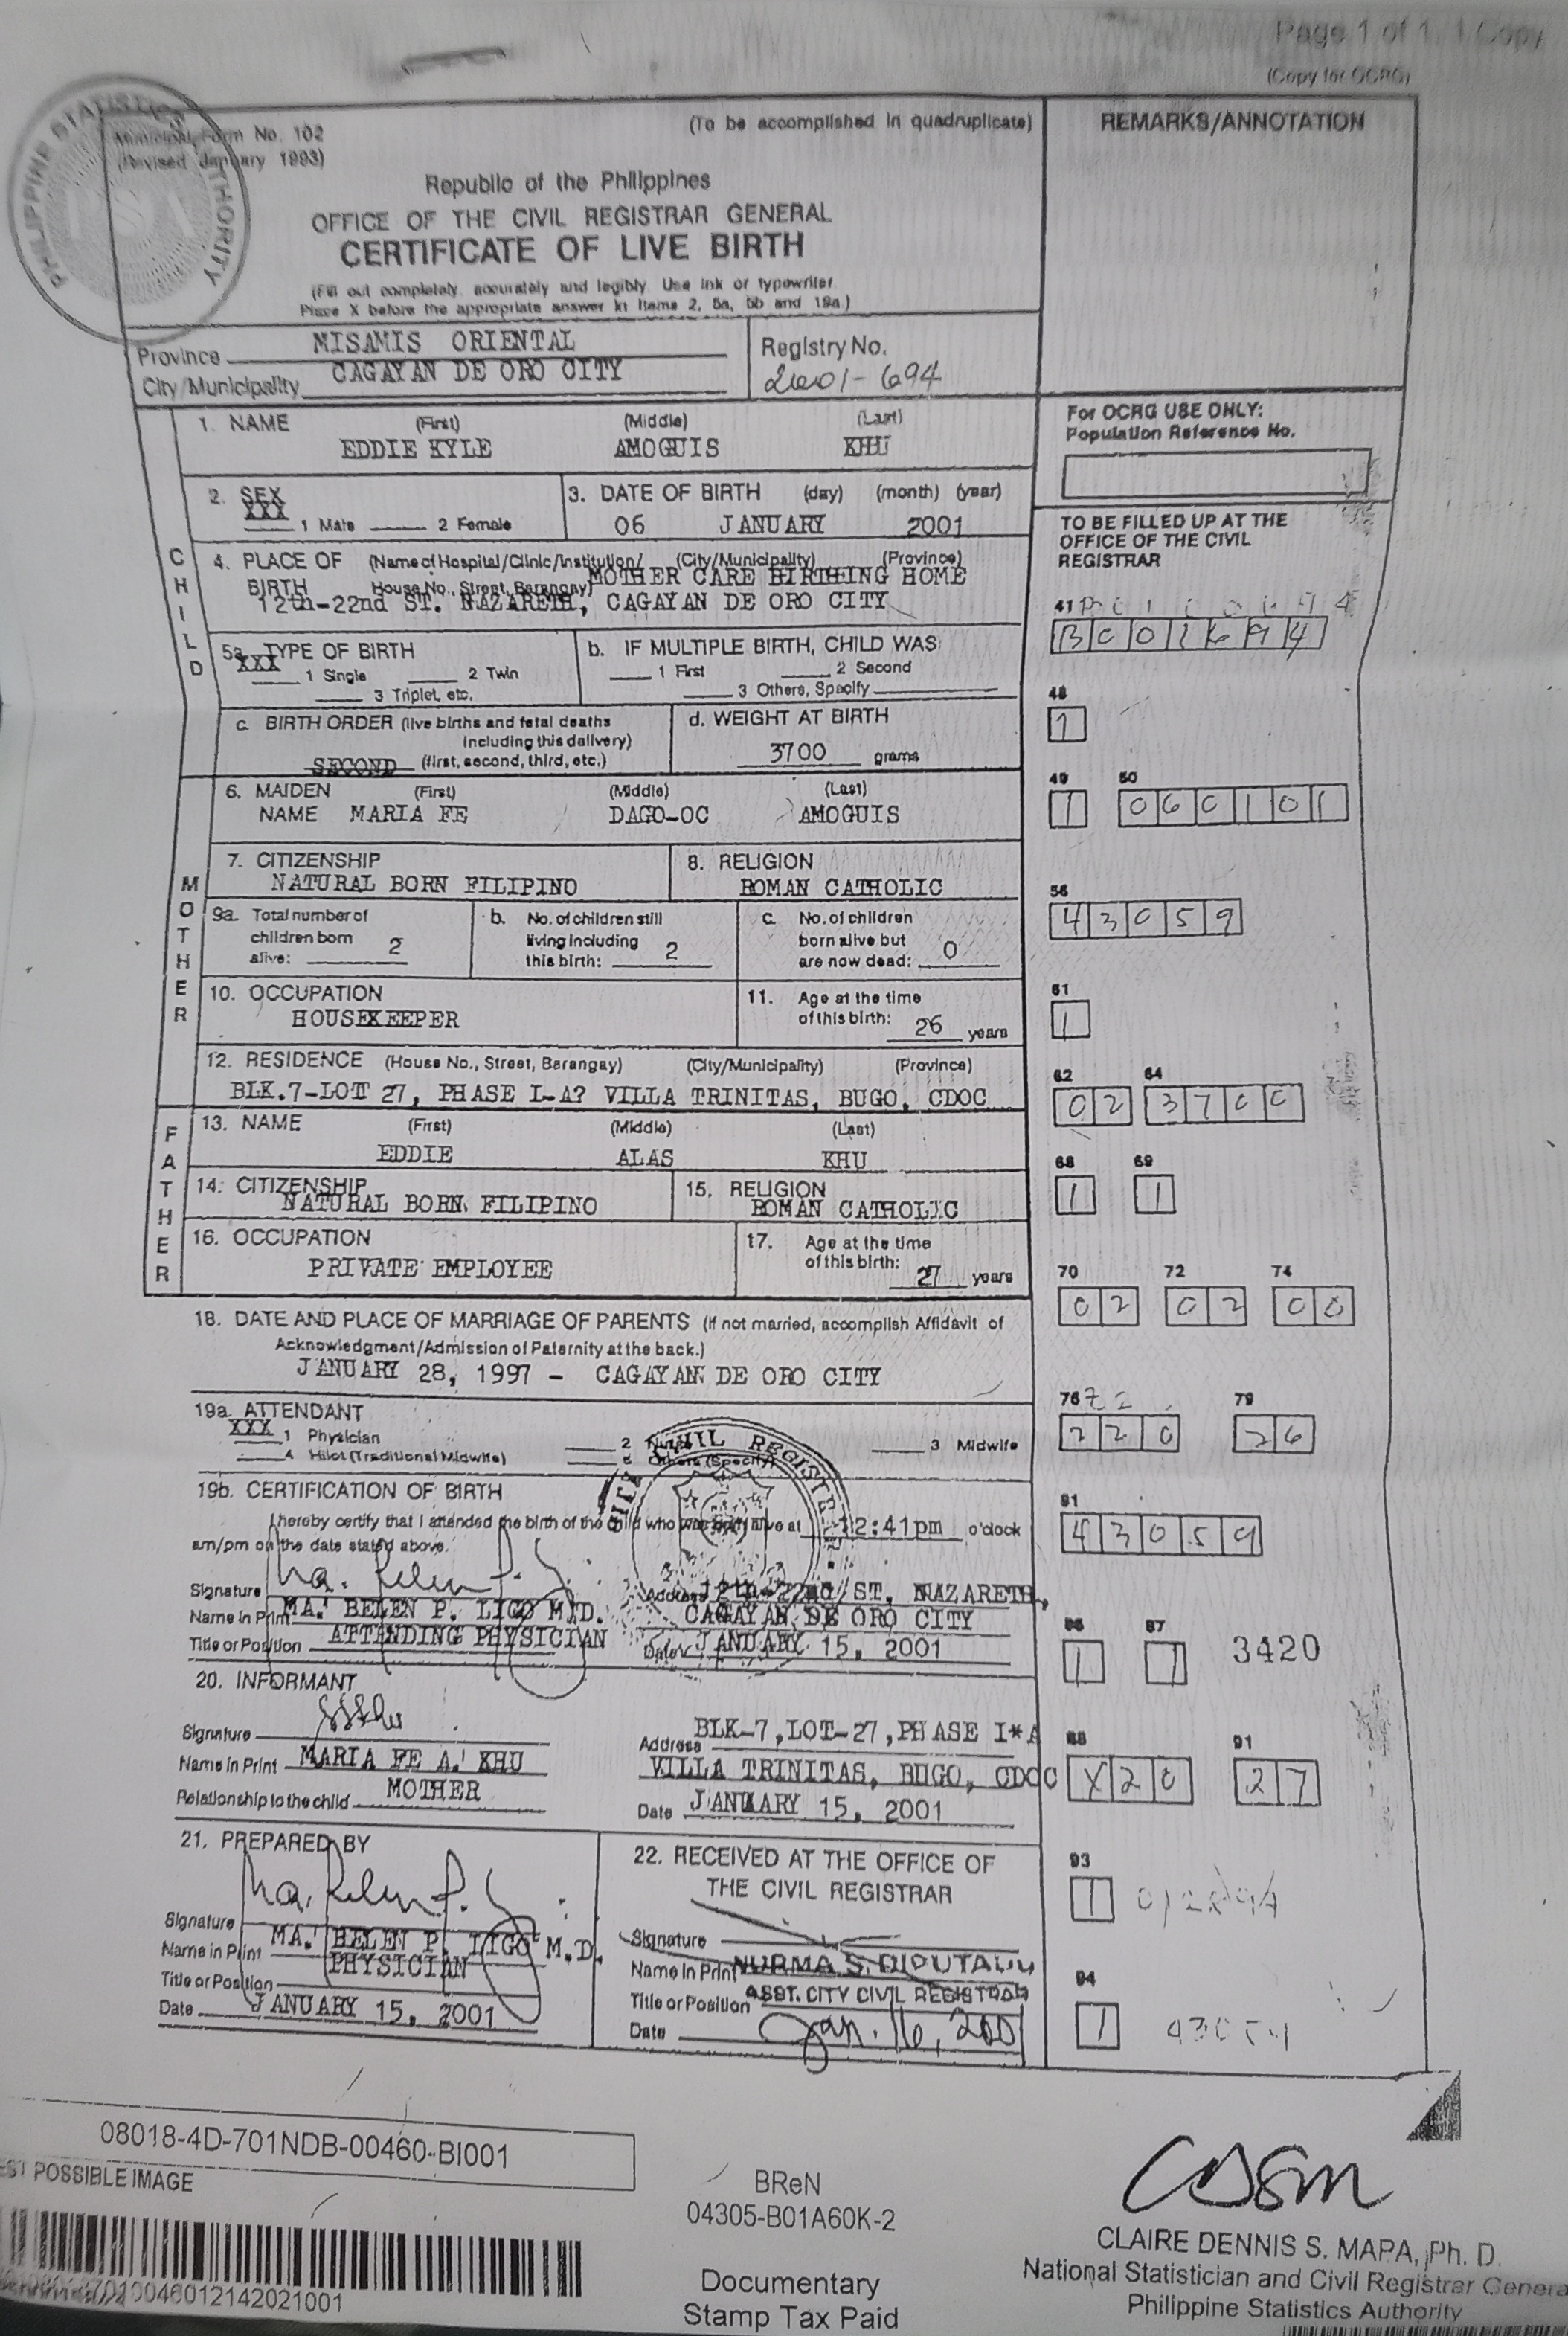 Page 1 of 1, 1 Copy
(Copy for OCRG)
PHILIPPINE STATISTICS AUTHORITY
PSA
Municipal Form No. 102
(Revised January 1993)
(To be accomplished in quadruplicate)
REMARKS/ANNOTATION
Republic of the Philippines
OFFICE OF THE CIVIL REGISTRAR GENERAL
CERTIFICATE OF LIVE BIRTH
(Fill out completely, accurately and legibly. Use ink or typewriter.
Place X before the appropriate answer in Items 2, 5a, 5b and 19a.)
Province MISAMIS ORIENTAL
City/Municipality CAGAYAN DE ORO CITY
Registry No.
2001-694
For OCRG USE ONLY:
Population Reference No.
CHILD
1. NAME (First) (Middle) (Last)
EDDIE KYLE AMOGUIS KHU
2. SEX
XXX 1 Male 2 Female
3. DATE OF BIRTH (day) (month) (year)
06 JANUARY 2001
TO BE FILLED UP AT THE
OFFICE OF THE CIVIL
REGISTRAR
4. PLACE OF BIRTH (Name of Hospital/Clinic/Institution/ (City/Municipality) (Province)
House No., Street, Barangay)
MOTHER CARE BIRTHING HOME
12th-22nd ST. NAZARETH, CAGAYAN DE ORO CITY
41
5a. TYPE OF BIRTH
XXX 1 Single 2 Twin
3 Triplet, etc.
b. IF MULTIPLE BIRTH, CHILD WAS
1 First 2 Second
3 Others, Specify
48
1
c. BIRTH ORDER (live births and fetal deaths
including this delivery)
SECOND (first, second, third, etc.)
d. WEIGHT AT BIRTH
3700 grams
MOTHER
6. MAIDEN NAME (First) (Middle) (Last)
MARIA FE DAGO-OC AMOGUIS
49 50
1 060101
7. CITIZENSHIP
NATURAL BORN FILIPINO
8. RELIGION
ROMAN CATHOLIC
56
43059
9a. Total number of
children born
alive: 2
b. No. of children still
living including
this birth: 2
c. No. of children
born alive but
are now dead: 0
10. OCCUPATION
HOUSEKEEPER
11. Age at the time
of this birth: 26 years
61
1
12. RESIDENCE (House No., Street, Barangay) (City/Municipality) (Province)
BLK.7-LOT 27, PHASE I-A? VILLA TRINITAS, BUGO, CDOC
62 64
02 3700
FATHER
13. NAME (First) (Middle) (Last)
EDDIE ALAS KHU
14. CITIZENSHIP
NATURAL BORN FILIPINO
15. RELIGION
ROMAN CATHOLIC
68 69
1 1
16. OCCUPATION
PRIVATE EMPLOYEE
17. Age at the time
of this birth: 27 years
70 72 74
02 02 00
18. DATE AND PLACE OF MARRIAGE OF PARENTS (If not married, accomplish Affidavit of
Acknowledgment/Admission of Paternity at the back.)
JANUARY 28, 1997 - CAGAYAN DE ORO CITY
19a. ATTENDANT
XXX 1 Physician 2 Nurse 3 Midwife
4 Hilot (Traditional Midwife) 5 Others (Specify)
76 79
220 26
19b. CERTIFICATION OF BIRTH
I hereby certify that I attended the birth of the child who was born alive at 12:41pm o'clock
am/pm on the date stated above.
81
43059
Signature
Name in Print MA. BELEN P. LIGO M.D.
Title or Position ATTENDING PHYSICIAN
Address 12th-22nd ST, NAZARETH,
CAGAYAN DE ORO CITY
Date JANUARY 15, 2001
86 87
1 1 3420
20. INFORMANT
Signature
Name in Print MARIA FE A. KHU
Relationship to the child MOTHER
Address BLK-7,LOT-27,PHASE I*A
VILLA TRINITAS, BUGO, CDOC
Date JANUARY 15, 2001
88 91
X20 27
21. PREPARED BY
Signature
Name in Print MA. BELEN P. LIGO M.D.
Title or Position PHYSICIAN
Date JANUARY 15, 2001
22. RECEIVED AT THE OFFICE OF
THE CIVIL REGISTRAR
Signature
Name in Print NURMA S. DIPUTADO
Title or Position ASST. CITY CIVIL REGISTRAR
Date Jan. 16, 2001
93
1
94
1
08018-4D-701NDB-00460-BI001
EST POSSIBLE IMAGE
BReN
04305-B01A60K-2
Documentary
Stamp Tax Paid
CLAIRE DENNIS S. MAPA, Ph. D.
National Statistician and Civil Registrar General
Philippine Statistics Authority